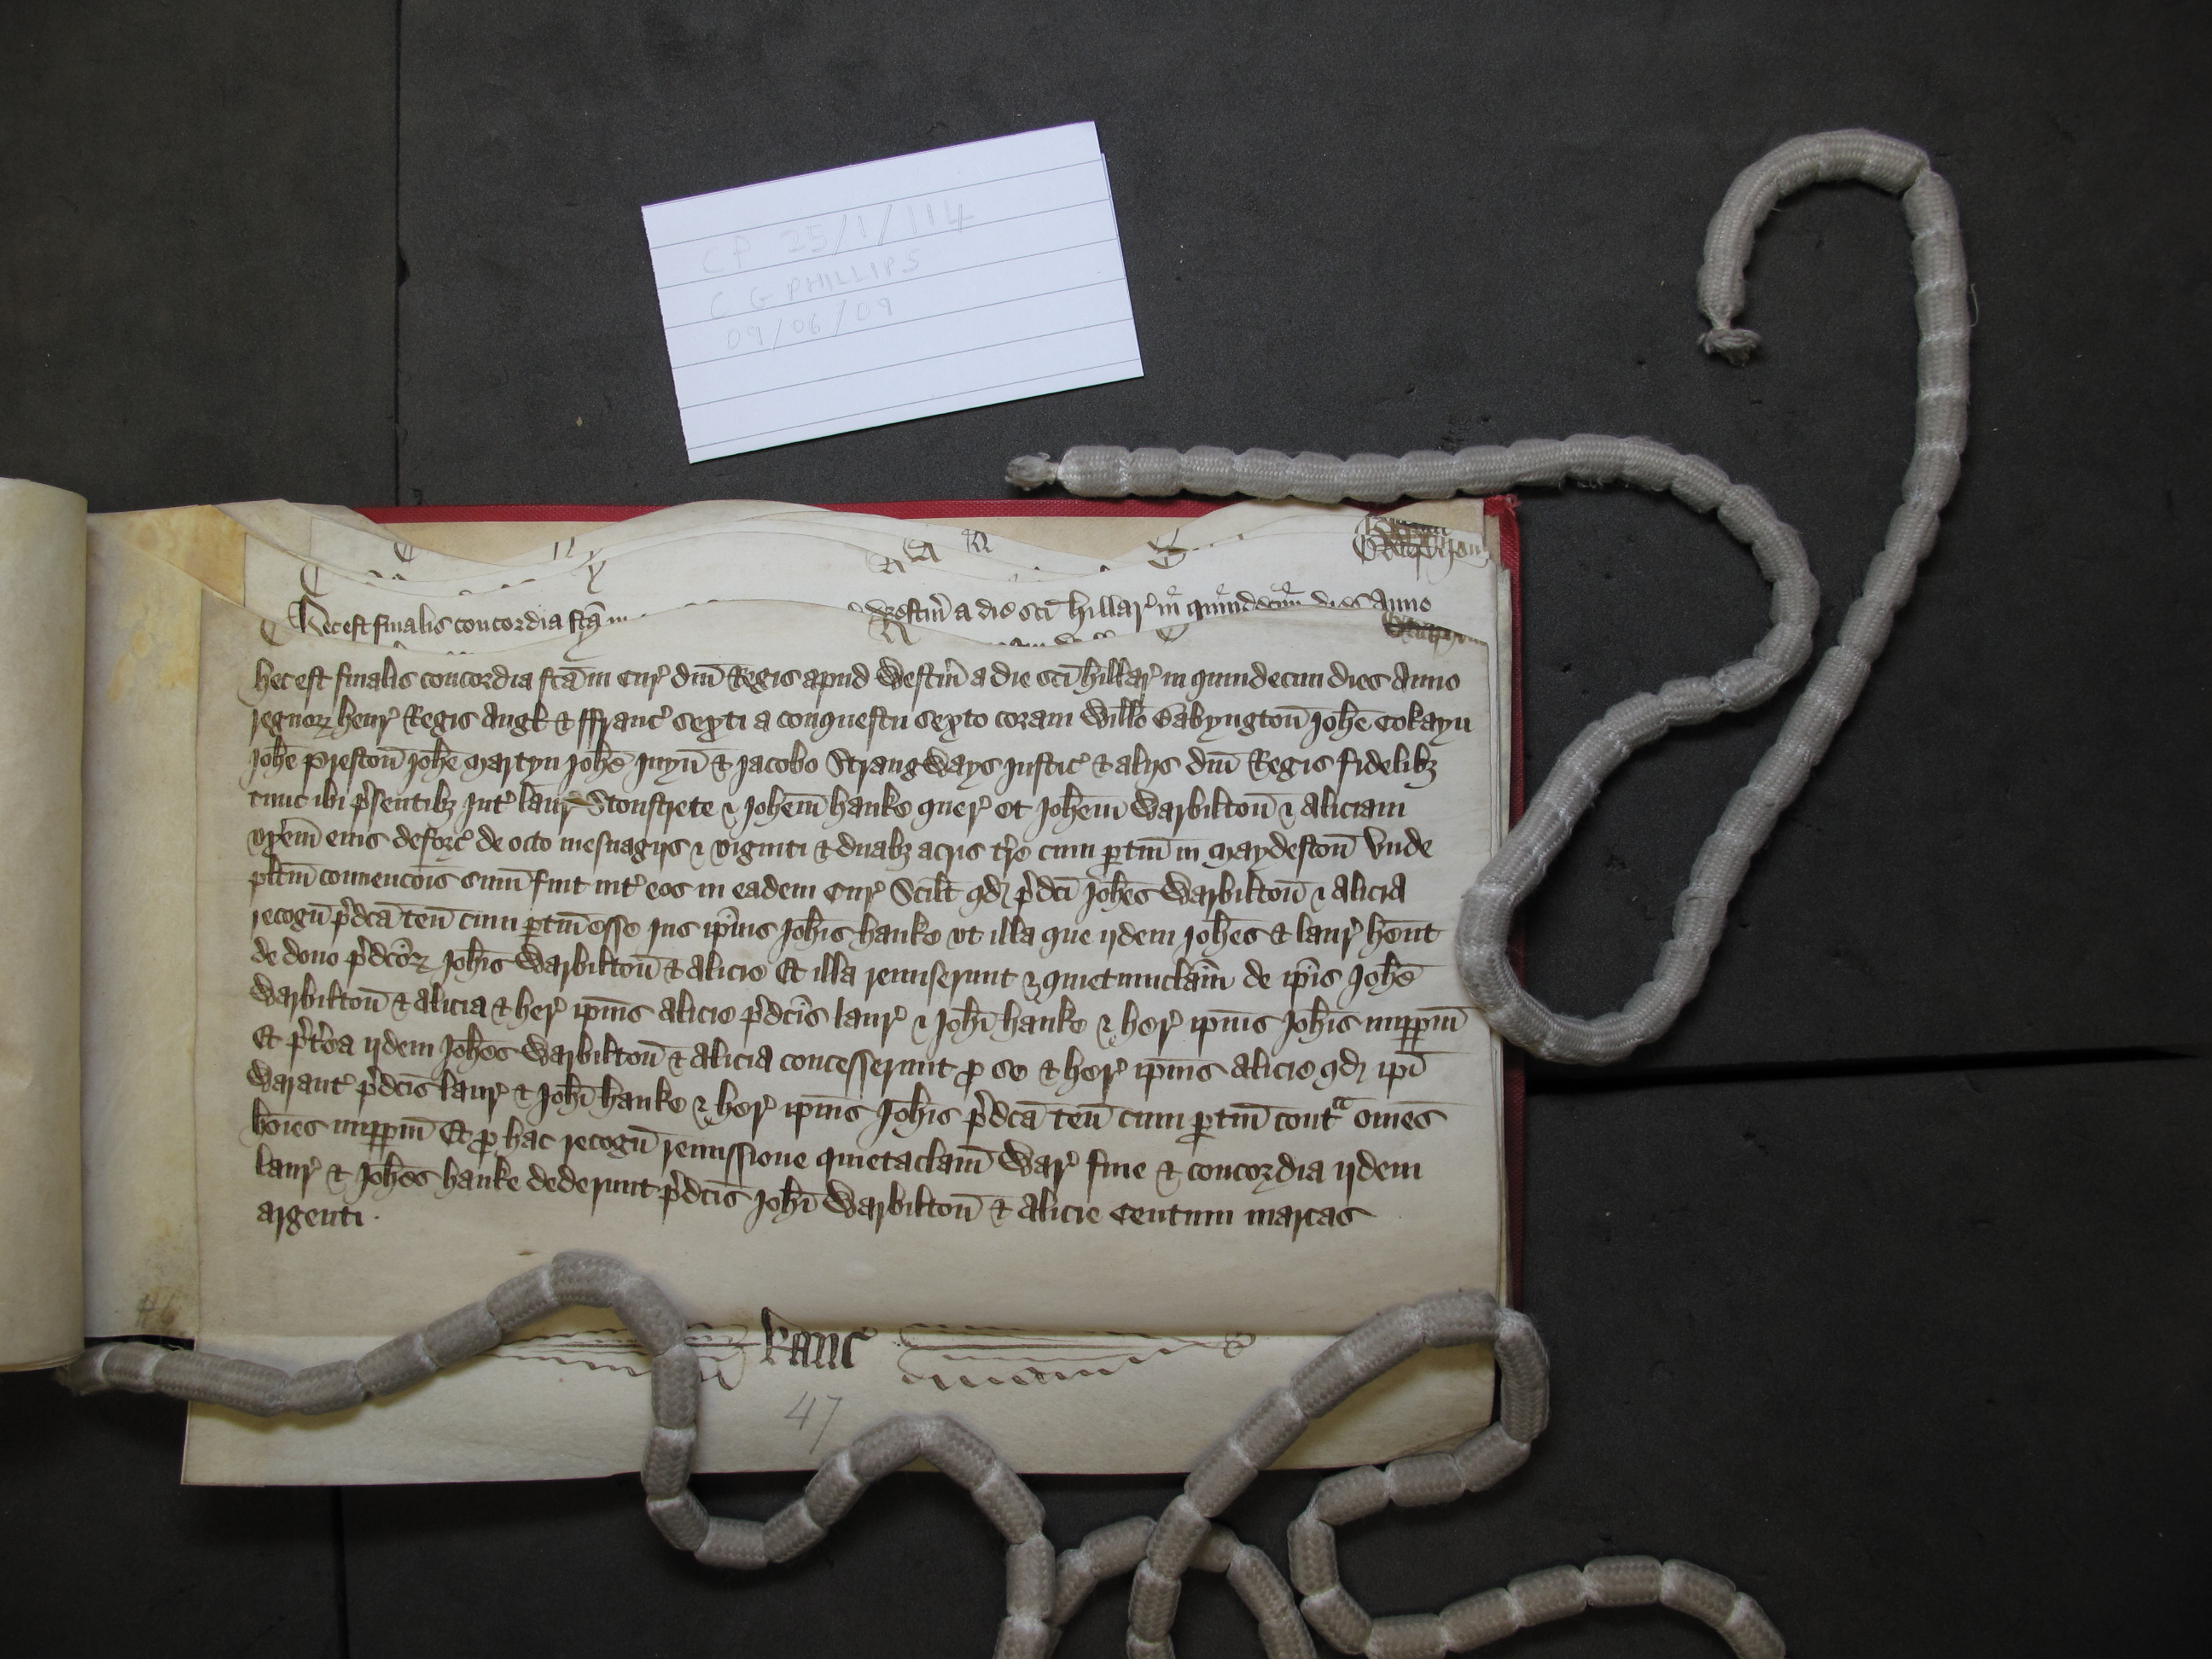 CP 25/1/114
C G PHILLIPS
09/06/09
Hec est finalis concordia fcā in
Westm̄ a die scī Hillar' in quindecim dies Anno
Hec est finalis concordia fcā in Cur' dnī Regis apud Westm̄ a die scī Hillar' in quindecim dies Anno
regnoꝝ Henr' Regis Angł & Ffranc' sexti a conquestu sexto coram Wiłło Babyngton̄ Joħe Cokayn
Joħe Preston̄ Joħe Martyn Joħe Juyn̄ & Jacobo Strangways Justic' & alijs dnī Regis fidelibꝫ
tunc ibi p'sentibꝫ Int' Laur' Stonstrete & Joħem Hanke quer' et Joħem Warbilton̄ & Aliciam
vx'em eius deforc' de octo mesuagijs & viginti & duabꝫ acris t're cum ꝑtin̄ in Maydeston̄ Vnde
plītm conuencōis sum̄ fuit int' eos in eadem Cur' Scilt qd p'dcī Joħes Warbilton̄ & Alicia
recogn̄ p'dcā ten̄ cum ꝑtin̄ esse Jus ip̄ius Joħis Hanke vt illa que ijdem Joħes & Laur' hēnt
de dono p'dcōꝝ Joħis Warbilton̄ & Alicie Et illa remiserunt & quietumclam̄ de ip̄is Joħe
Warbilton̄ & Alicia & her' ip̄ius Alicie p'dcīs Laur' & Joħi Hanke & her' ip̄ius Joħis imꝑꝑm̄
Et p't'ea ijdem Joħes Warbilton̄ & Alicia concesserunt ꝑ se & her' ip̄ius Alicie qd ip̄i
Warant' p'dcīs Laur' & Joħi Hanke & her' ip̄ius Joħis p'dcā ten̄ cum ꝑtin̄ contᵃ om̄es
hōies imꝑꝑm̄ Et ꝑ hac recogn̄ remissione quietaclam̄ War' fine & concordia ijdem
Laur' & Joħes Hanke dederunt p'dcīs Joħi Warbilton̄ & Alicie Centum marcas
argenti .
Kanc'
47